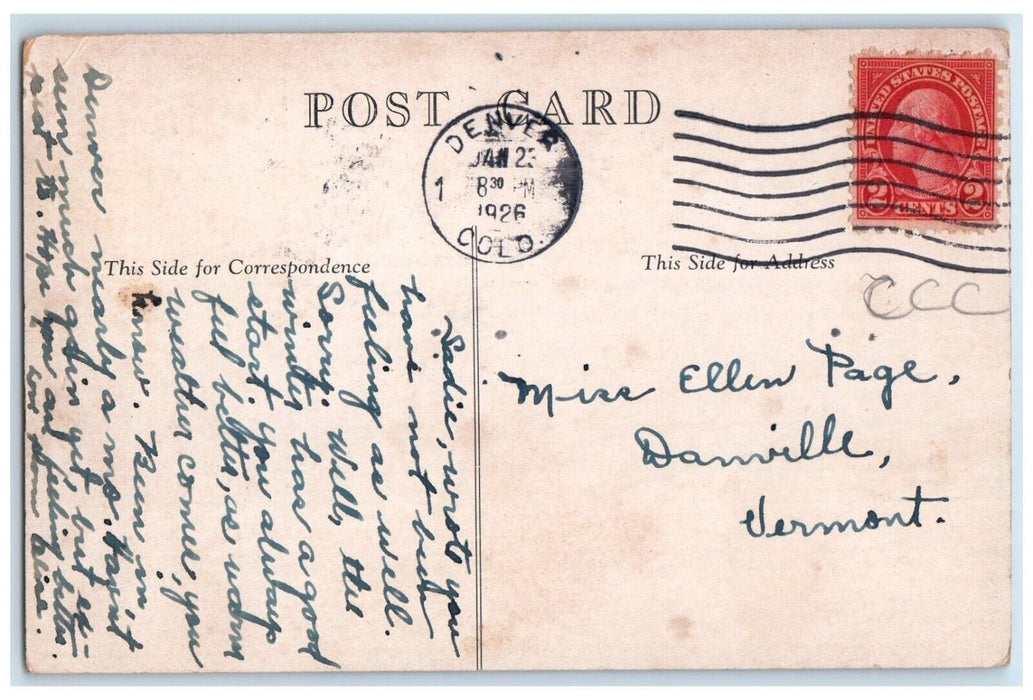 POST CARD
DENVER
JAN 23
1 8 30 PM
1926
COLO.
UNITED STATES POSTAGE
2 CENTS 2
This Side for Correspondence
This Side for Address
CCC
Miss Ellen Page,
Danville,
Vermont.
Sadie, wrote you
have not been
feeling as well.
Sorry. Well, the
winter has a good
start. You always
feel better, as warm
weather comes, you
know. Been in
Denver nearly a mo. Hav'nt
seen much gain yet but ex-
pect to. Hope you are feeling better
from